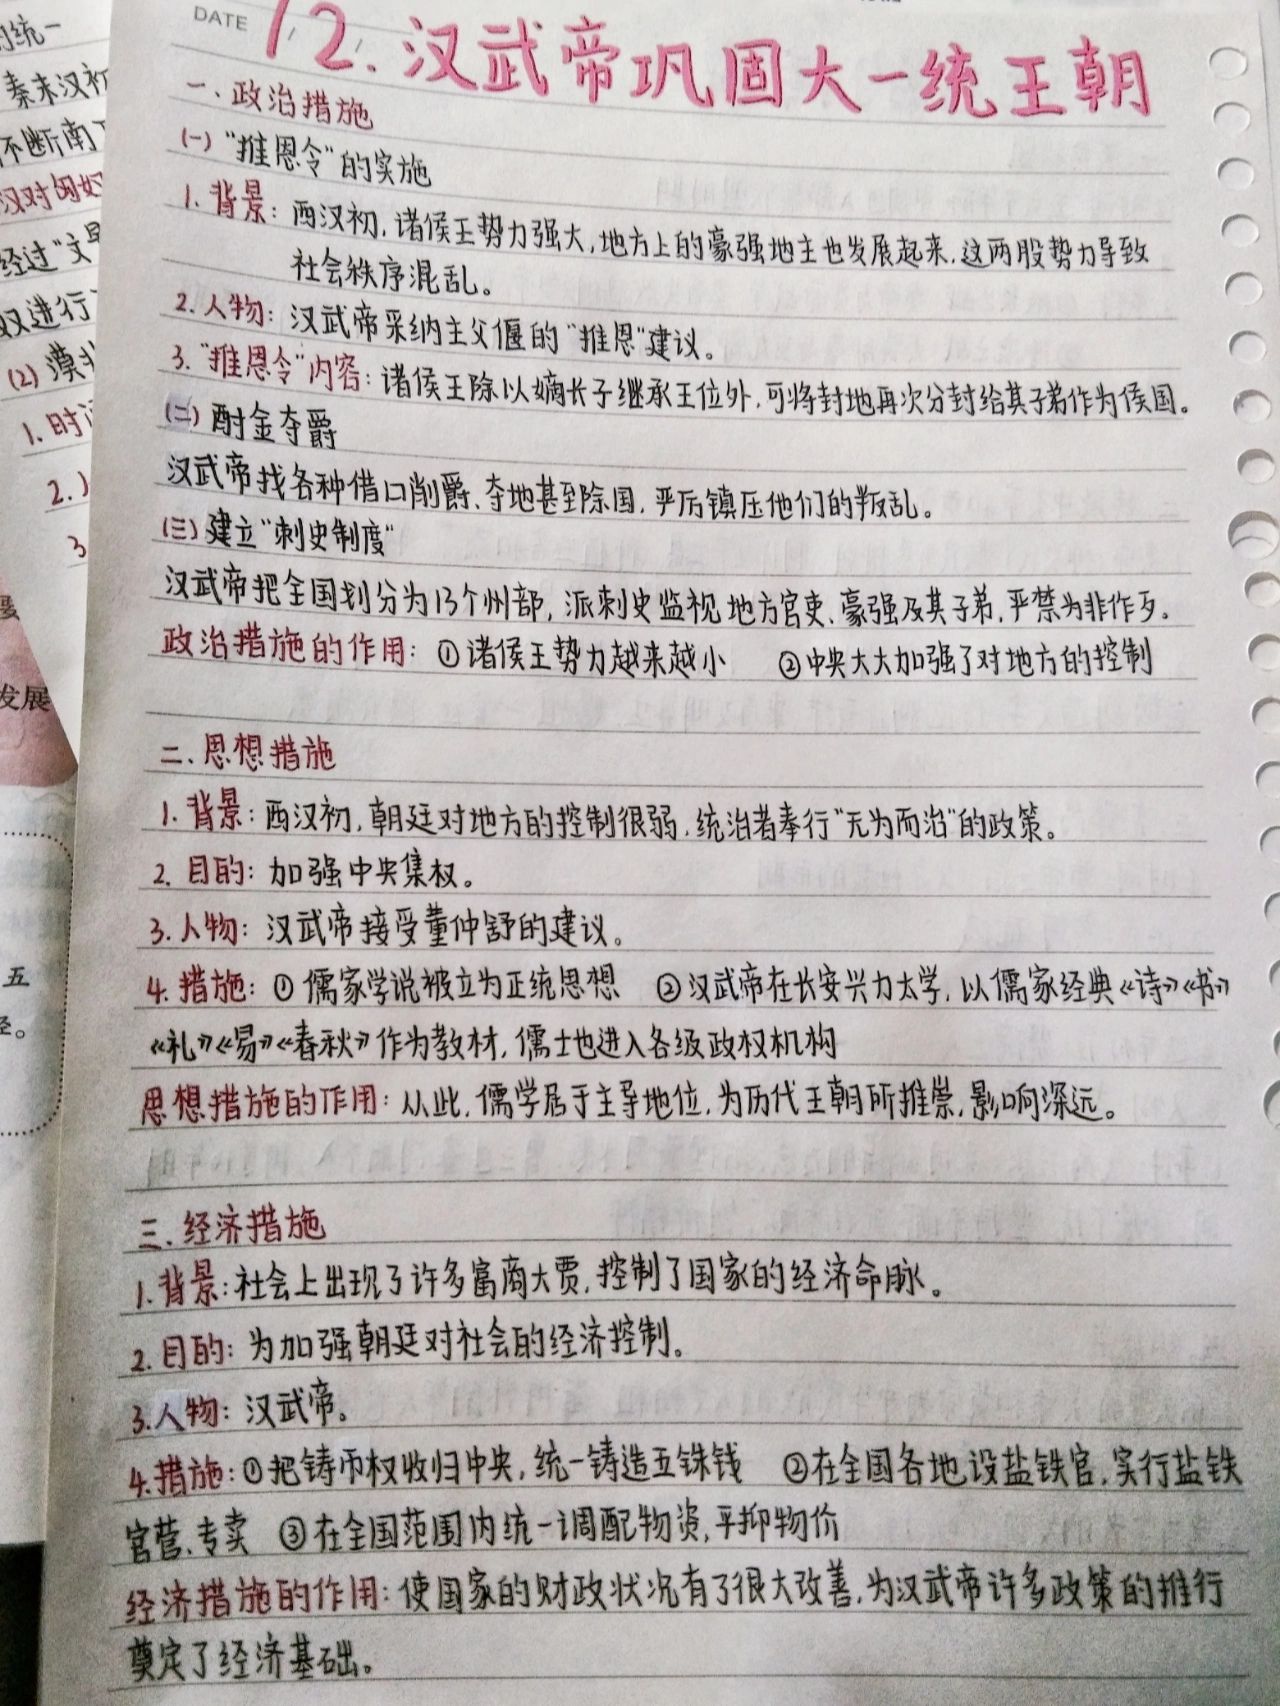 DATE
12. 汉武帝巩固大一统王朝
一. 政治措施
(一)“推恩令”的实施
1. 背景: 西汉初, 诸侯王势力强大, 地方上的豪强地主也发展起来, 这两股势力导致
社会秩序混乱。
2. 人物: 汉武帝采纳主父偃的“推恩”建议。
3.“推恩令”内容: 诸侯王除以嫡长子继承王位外, 可将封地再次分封给其子弟作为侯国。
(二) 酎金夺爵
汉武帝找各种借口削爵、夺地甚至除国, 严厉镇压他们的叛乱。
(三) 建立“刺史制度”
汉武帝把全国划分为13个州部, 派刺史监视地方官吏、豪强及其子弟, 严禁为非作歹。
政治措施的作用: ①诸侯王势力越来越小 ②中央大大加强了对地方的控制
二. 思想措施
1. 背景: 西汉初, 朝廷对地方的控制很弱, 统治者奉行“无为而治”的政策。
2. 目的: 加强中央集权。
3. 人物: 汉武帝接受董仲舒的建议。
4. 措施: ①儒家学说被立为正统思想 ②汉武帝在长安兴办太学, 以儒家经典《诗》《书》
《礼》《易》《春秋》作为教材, 儒士也进入各级政权机构
思想措施的作用: 从此, 儒学居于主导地位, 为历代王朝所推崇, 影响深远。
三. 经济措施
1. 背景: 社会上出现了许多富商大贾, 控制了国家的经济命脉。
2. 目的: 为加强朝廷对社会的经济控制。
3. 人物: 汉武帝。
4. 措施: ①把铸币权收归中央, 统一铸造五铢钱 ②在全国各地设盐铁官, 实行盐铁
官营、专卖 ③在全国范围内统一调配物资, 平抑物价
经济措施的作用: 使国家的财政状况有了很大改善, 为汉武帝许多政策的推行
奠定了经济基础。
的统一
秦末汉初
不断南下
汉对匈奴
经过“文景
奴进行
(2) 漠北
1. 时间
2.
3
发展
五